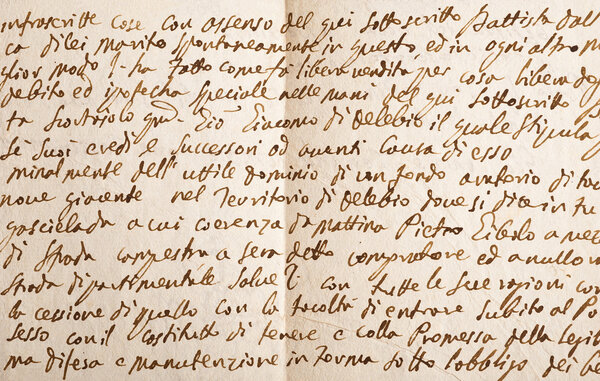 infrascritte cose con assenso del qui sottoscritto Battista dall
ca di lei marito spontaneamente in questo, ed in ogni altro m
glior modo ha fatto come fà libera vendita, per cosa libera da
debito ed ipotecha speciale nelle mani del qui sottoscritto
ta qm. Gio Giacomo di delebio il quale stipula
se suoi eredi e successori ad aventi causa di esso
minalmente dell' uttile dominio di un fondo aratorio di
nove giacente nel Territorio di delebio dove si dice in
gascielada a cui coerenza da mattina Pietro a mez
di strada campestra a sera detto compratore ed a nullo
strada dipartimentale salve con tutte le sue ragioni con
la cessione di quello con la facoltà di entrare subito al Po
sesso con il costituto di tenere e colla Promessa della legit
ma difesa e manutenzione in forma sotto l'obbligo dei be